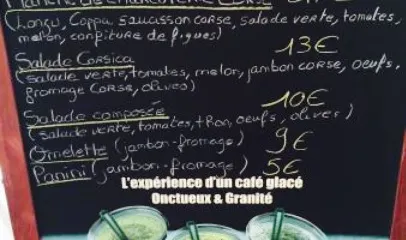 Planche de charcuterie Corse
(Lonzu, Coppa, saucisson corse, salade verte, tomates,
melon, confiture de figues)
13€
Salade Corsica
(salade verte, tomates, melon, jambon corse, oeufs,
fromage corse, olives)
10€
Salade composée
(salade verte, tomates, thon, oeufs, olives)
Omelette (jambon-fromage) 9€
Panini (jambon-fromage) 5€
L'expérience d'un café glacé
Onctueux & Granité